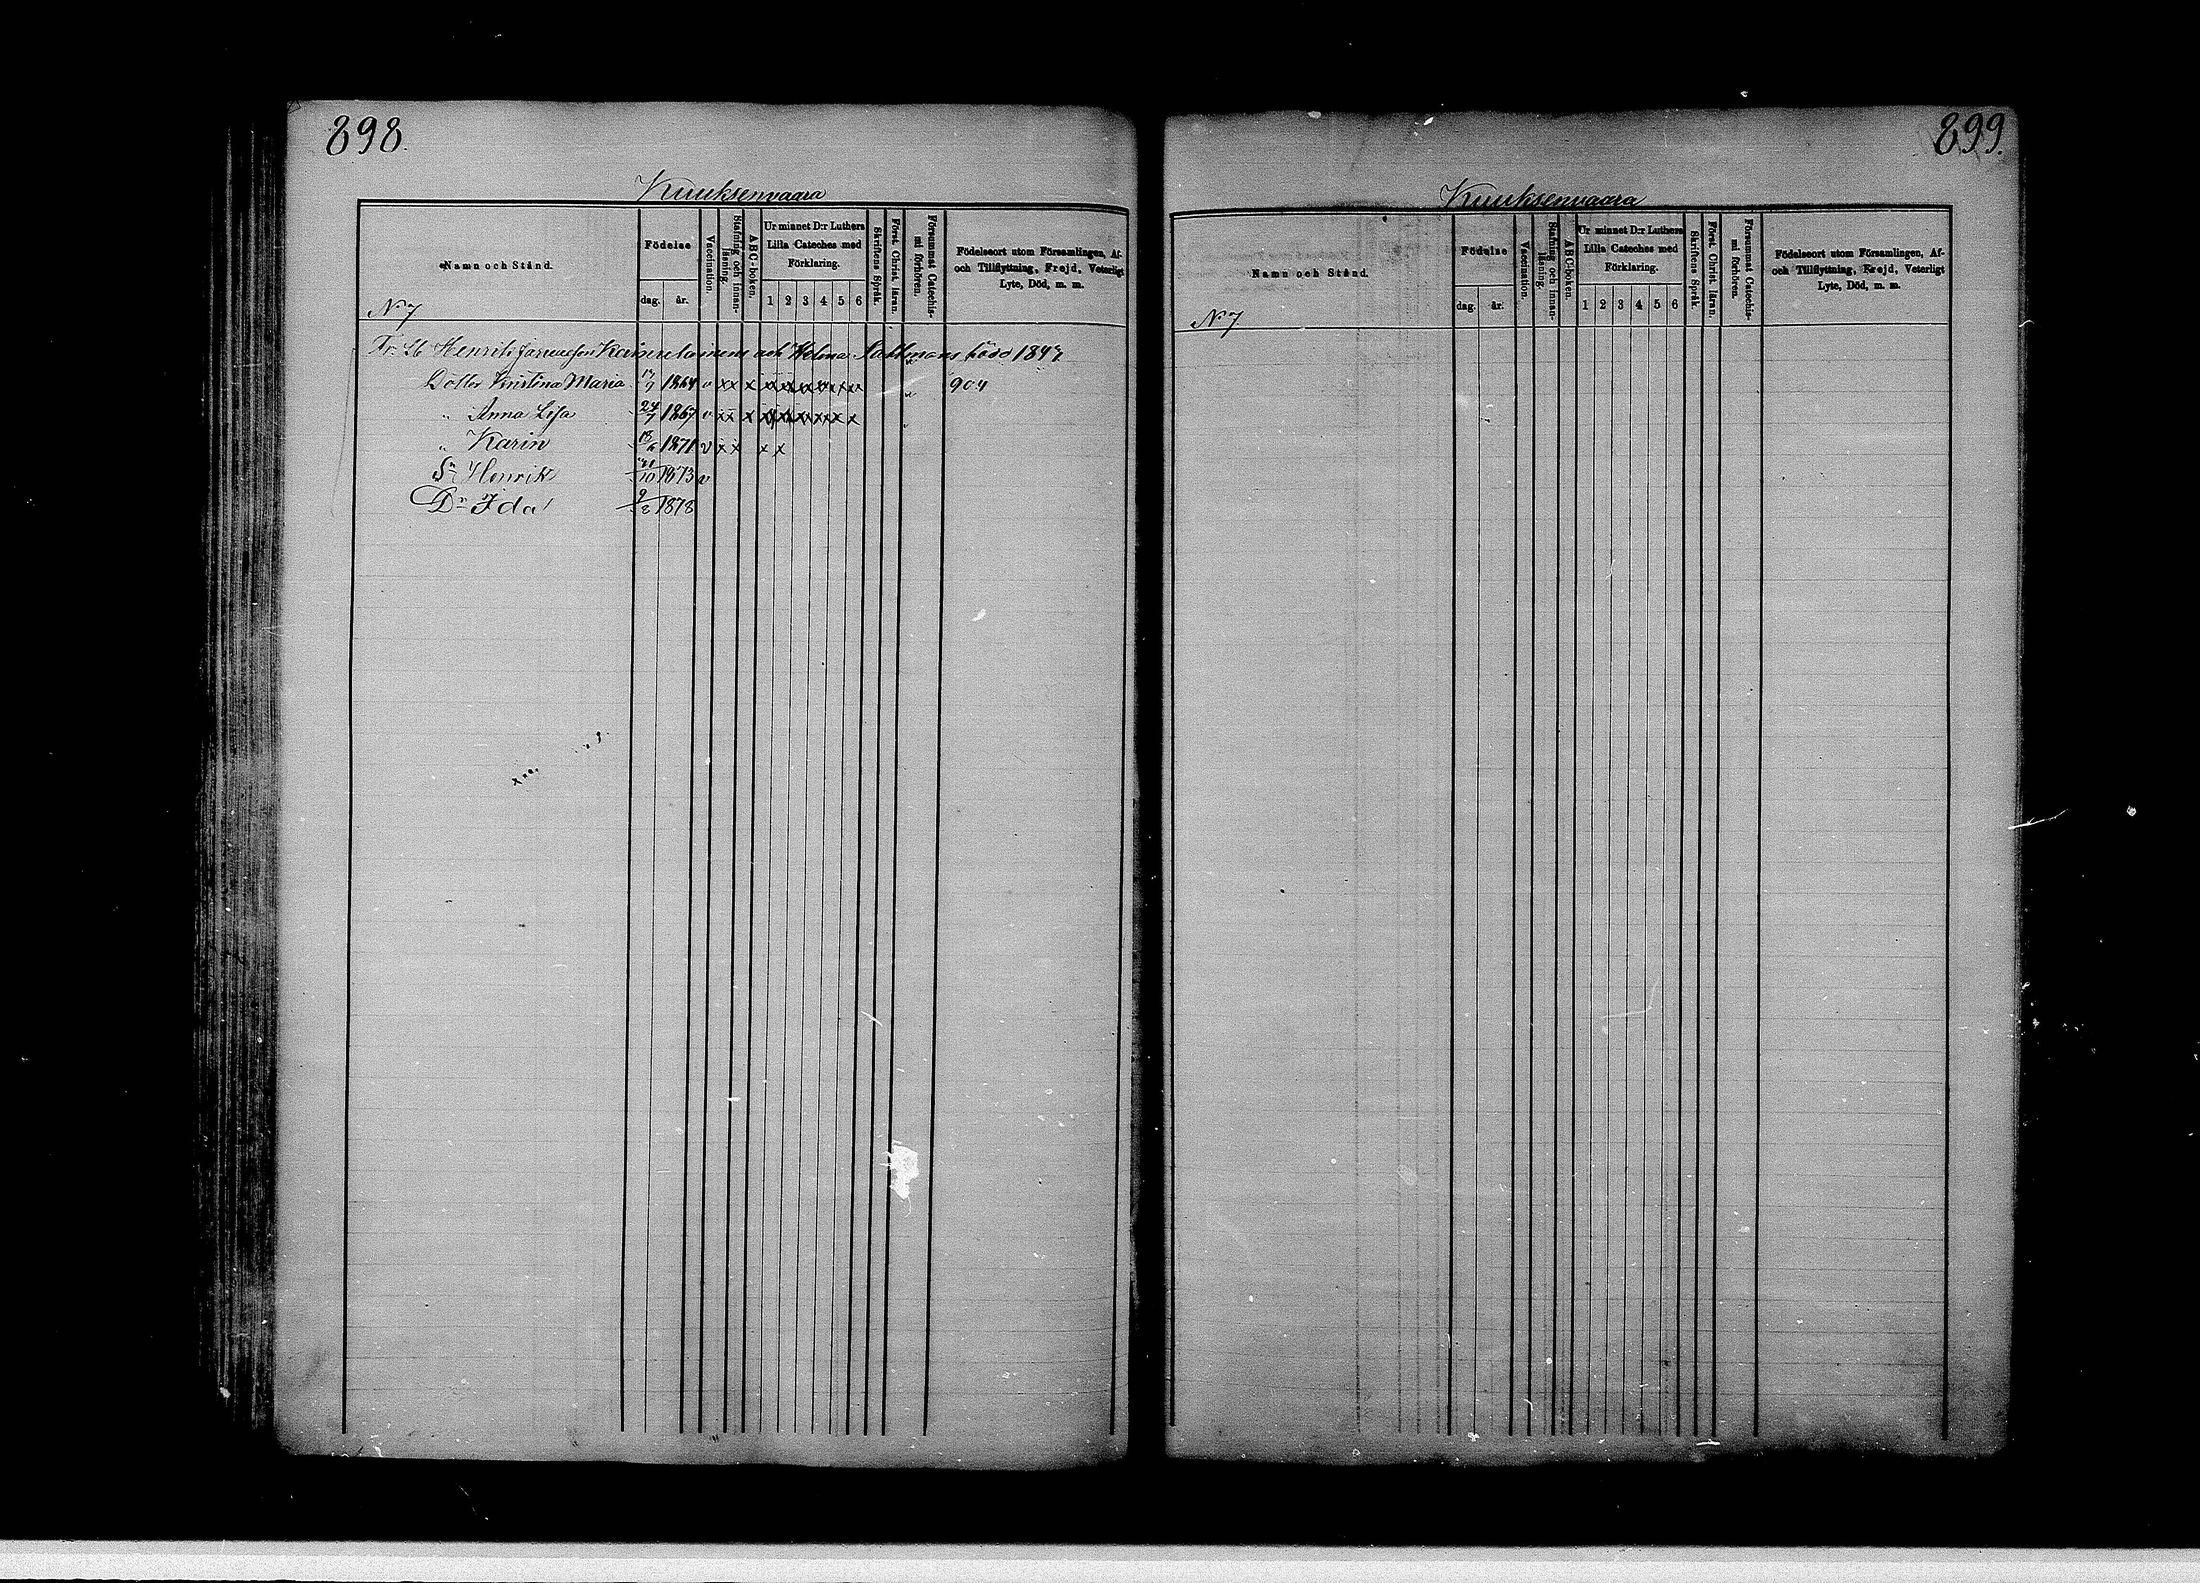 898.
Kuuksenvaara
Namn och Stånd.
Födelse
dag.
år.
Vaccination.
Stafning och innanläsning.
ABC-boken.
Ur minnet D:r Luthers Lilla Cateches med Förklaring.
1 2 3 4 5 6
Skriftens Språk.
Först. Christ. läran.
Försummat Catechismi förhören.
Födelseort utom Församlingen, Af- och Tillflyttning, Frejd, Veterligt Lyte, Död, m. m.
N 7
Henrik och Helena född 1847
Dotter Kristina Maria 1864 v xx x 904
" Anna Lisa 24/7 1867 v xx x
" Karin 1871 v xx x x
Sn Henrik /10 1873 v
Dr Ida 9/2 1878
899.
Kuuksenvaara
Namn och Stånd.
Födelse
dag.
år.
Vaccination.
Stafning och innanläsning.
ABC-boken.
Ur minnet D:r Luthers Lilla Cateches med Förklaring.
1 2 3 4 5 6
Skriftens Språk.
Först. Christ. läran.
Försummat Catechismi förhören.
Födelseort utom Församlingen, Af- och Tillflyttning, Frejd, Veterligt Lyte, Död, m. m.
N 7